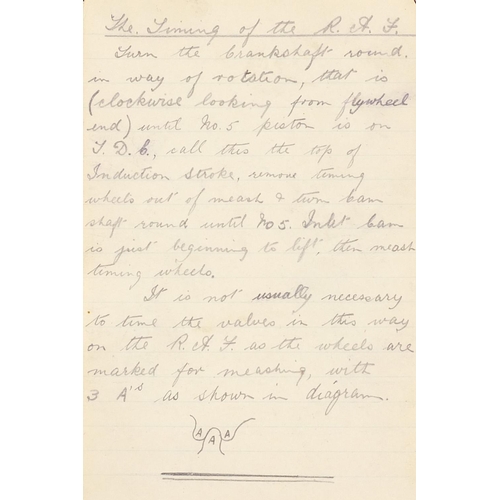 The. Timing of the R. A. F.
Turn the Crankshaft round.
in way of rotation, that is
(clockwise looking from flywheel
end) until No. 5 piston is on
T. D. C., call this the top of
Induction stroke, remove timing
wheels out of meash & turn Cam
shaft round until No 5. Inlet Cam
is just beginning to lift, then meash
timing wheels.
It is not usually necessary
to time the valves in this way
on the R. A. F. as the wheels are
marked for meashing, with
3 A's as shown in diagram.
A A A